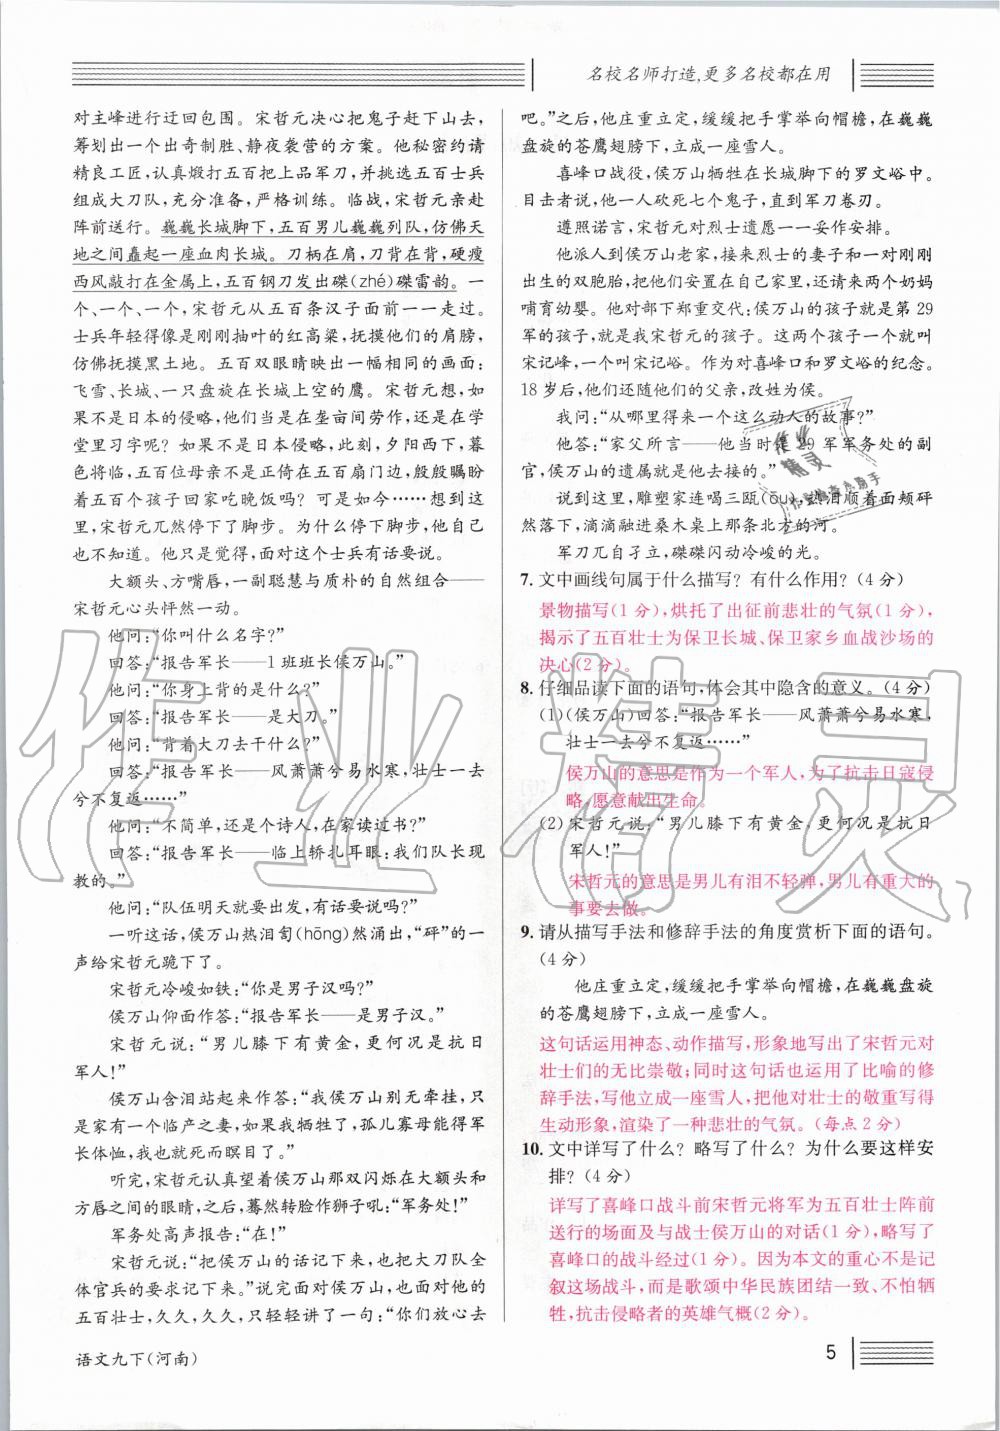 名校名师打造,更多名校都在用
对主峰进行迂回包围。宋哲元决心把鬼子赶下山去,
筹划出一个出奇制胜、静夜袭营的方案。他秘密约请
精良工匠,认真煅打五百把上品军刀,并挑选五百士兵
组成大刀队,充分准备,严格训练。临战,宋哲元亲赴
阵前送行。巍巍长城脚下,五百男儿巍巍列队,仿佛天
地之间矗起一座血肉长城。刀柄在肩,刀背在背,硬瘦
西风敲打在金属上,五百钢刀发出磔(zhé)磔雷韵。一
个、一个、一个,宋哲元从五百条汉子面前一一走过。
士兵年轻得像是刚刚抽叶的红高粱,抚摸他们的肩膀,
仿佛抚摸黑土地。五百双眼睛映出一幅相同的画面:
飞雪、长城、一只盘旋在长城上空的鹰。宋哲元想,如
果不是日本的侵略,他们应当在垄亩间劳作,还是在学
堂里习字呢?如果不是日本侵略,此刻,夕阳西下,暮
色将临,五百位母亲不是正倚在五百扇门边,殷殷呼唤
五百个孩子回家吃晚饭吗?可是如今……想到这
里,宋哲元兀然停下了脚步。为什么停下脚步,他自己
也不知道。他只是觉得,面对这个士兵有话要说。
大额头、方嘴唇,一副聪慧与质朴的自然组合——
宋哲元心头怦然一动。
他问:“你叫什么名字?”
回答:“报告军长——1班班长侯万山。”
他问:“你身上背的是什么?”
回答:“报告军长——是大刀。”
他问:“背着大刀去干什么?”
回答:“报告军长——风萧萧兮易水寒,壮士一去
兮不复返……”
他问:“不简单,还是个诗人,在家读过书?”
回答:“报告军长——临上轿扎耳眼:我们队长现
教的。”
他问:“队伍明天就要出发,有话要说吗?”
一听这话,侯万山热泪訇(hōng)然涌出,“砰”的一
声给宋哲元跪下了。
宋哲元冷峻如铁:“你是男子汉吗?”
侯万山仰面作答:“报告军长——是男子汉。”
宋哲元说:“男儿膝下有黄金,更何况是抗日
军人!”
侯万山含泪站起来作答:“我侯万山别无牵挂,只
是家有一个临产之妻,如果我牺牲了,孤儿寡母能得军
长体恤,我代他们向你磕头啦!”
听完,宋哲元认真望着侯万山那双闪烁在大额头和
方唇之间的眼睛,之后,蓦然转脸作狮子吼:“军务处!”
军务处高声报告:“在!”
宋哲元说:“把侯万山的话记下来,当作大刀队全
体官兵的要求记下来。”说完面对侯万山,也面对他的
五百壮士,久久,久久,只轻轻讲了一句:“你们放心去
吧。”之后,他庄重立定,缓缓把手掌举向帽檐,在巍巍
盘旋的苍鹰翅膀下,立成一座雪人。
喜峰口战役,侯万山牺牲在长城脚下的罗文峪中。
目击者说,他一人砍死七个鬼子,直到军刀卷刃。
遵照诺言,宋哲元对烈士遗愿一一妥作安排。
他派人到侯万山老家,接来烈士的妻子和一对刚刚
出生的双胞胎,把他们安置在自己家里,还请了两个奶妈
哺育幼婴。他对部下郑重交代:侯万山的孩子就是第29
军的孩子,就是我宋哲元的孩子。这两个孩子一个就叫
宋记峰,一个就叫宋记峪。作为对喜峰口和罗文峪的纪念。
18岁后,他们还随他们的父亲,改姓为侯。
我问:“从哪里得来一个这么动人的故事?”
他答:“家父所言——他当时是29军军务处的副
官,侯万山的遗属就是他去接的。”
说到这里,雕塑家连喝三瓯(ōu),
然落下,滴滴融进桑木桌上那条北方的河。
军刀兀自孑立,磔磔闪动冷峻的光。
7. 文中画线句属于什么描写?有什么作用?(4分)
景物描写(1分),烘托了出征前悲壮的气氛(1分),
揭示了五百壮士为保卫长城、保卫家乡血战沙场的
决心(2分)。
8. 仔细品读下面的语句,体会其中隐含的意义。(4分)
(1)(侯万山)回答:“报告军长——风萧萧兮易水寒,
壮士一去兮不复返……”
侯万山的意思是作为一个军人,为了抗击日寇侵
略,愿意献出生命。
(2)宋哲元说:“男儿膝下有黄金,更何况是抗日
军人!”
宋哲元的意思是男儿有泪不轻弹,男儿有重大的
事要去做。
9. 请从描写手法和修辞手法的角度赏析下面的语句。
(4分)
他庄重立定,缓缓把手掌举向帽檐,在巍巍盘旋
的苍鹰翅膀下,立成一座雪人。
这句话运用神态、动作描写,形象地写出了宋哲元对
壮士们的无比崇敬;同时这句话也运用了比喻的修
辞手法,写他立成一座雪人,把他对壮士的敬重写得
生动形象,渲染了一种悲壮的气氛。(每点2分)
10. 文中详写了什么?略写了什么?为什么要这样安
排?(4分)
详写了喜峰口战斗前宋哲元将军为五百壮士阵前
送行的场面及与战士侯万山的对话(1分),略写了
喜峰口的战斗经过(1分)。因为本文的重心不是记
叙这场战斗,而是歌颂中华民族团结一致、不怕牺
牲,抗击侵略者的英雄气概(2分)。
语文九下(河南)
5
作业精灵